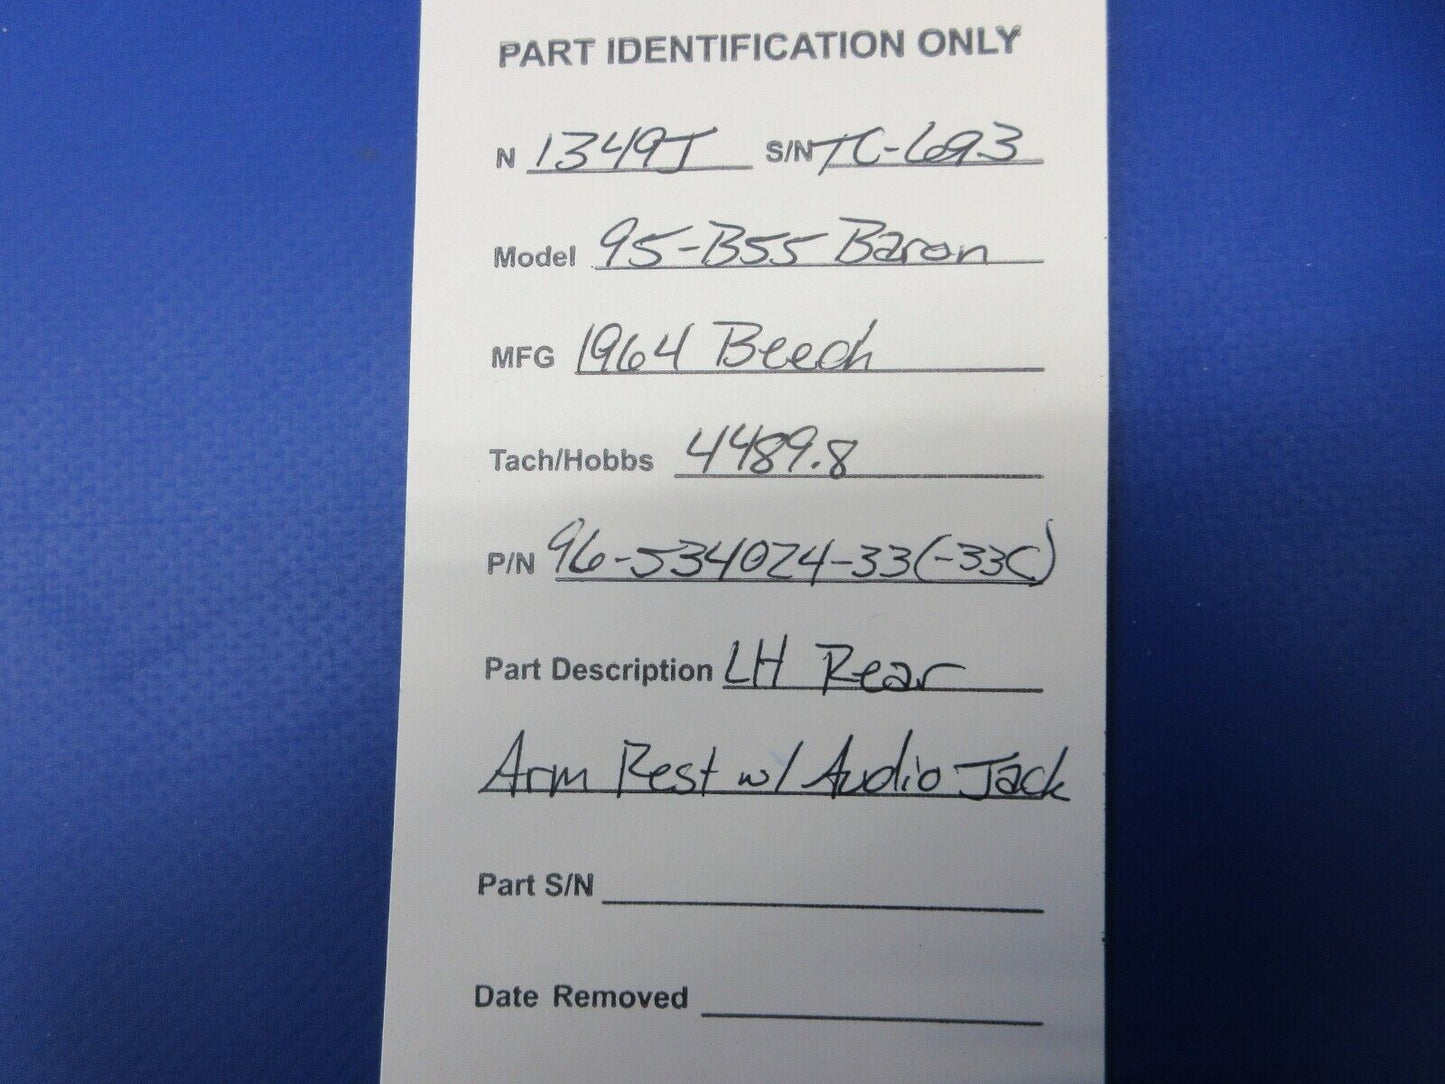 PART IDENTIFICATION ONLY
N 1349J S/N TC-693
Model 95-B55 Baron
MFG 1964 Beech
Tach/Hobbs 4489.8
P/N 96-534024-33(-33C)
Part Description LH Rear
Arm Rest w/ Audio Jack
Part S/N
Date Removed